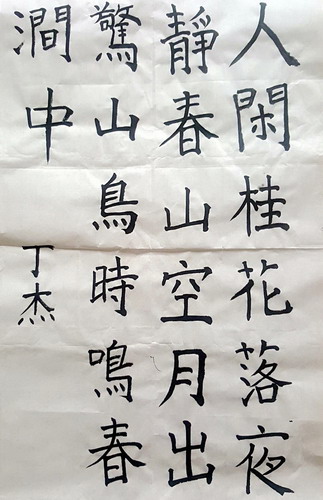 人閑桂花落夜
靜春山空月出
驚山鳥時鳴春
澗中
丁杰